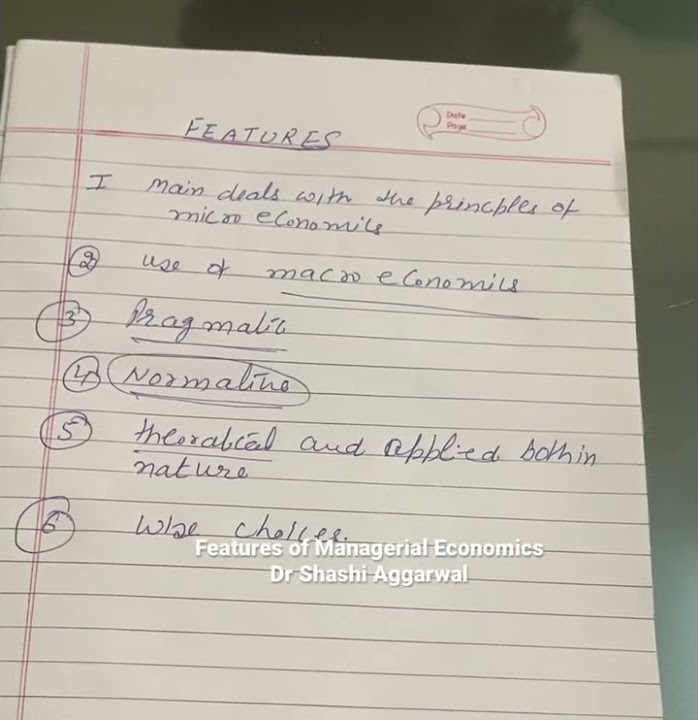 FEATURES
Date
Page
I main deals with the principles of
micro economics
② use of macro economics
③ Pragmatic
④ Normative
⑤ theoratical and applied both in
nature
⑥ Wise choices.
Features of Managerial Economics
Dr Shashi Aggarwal